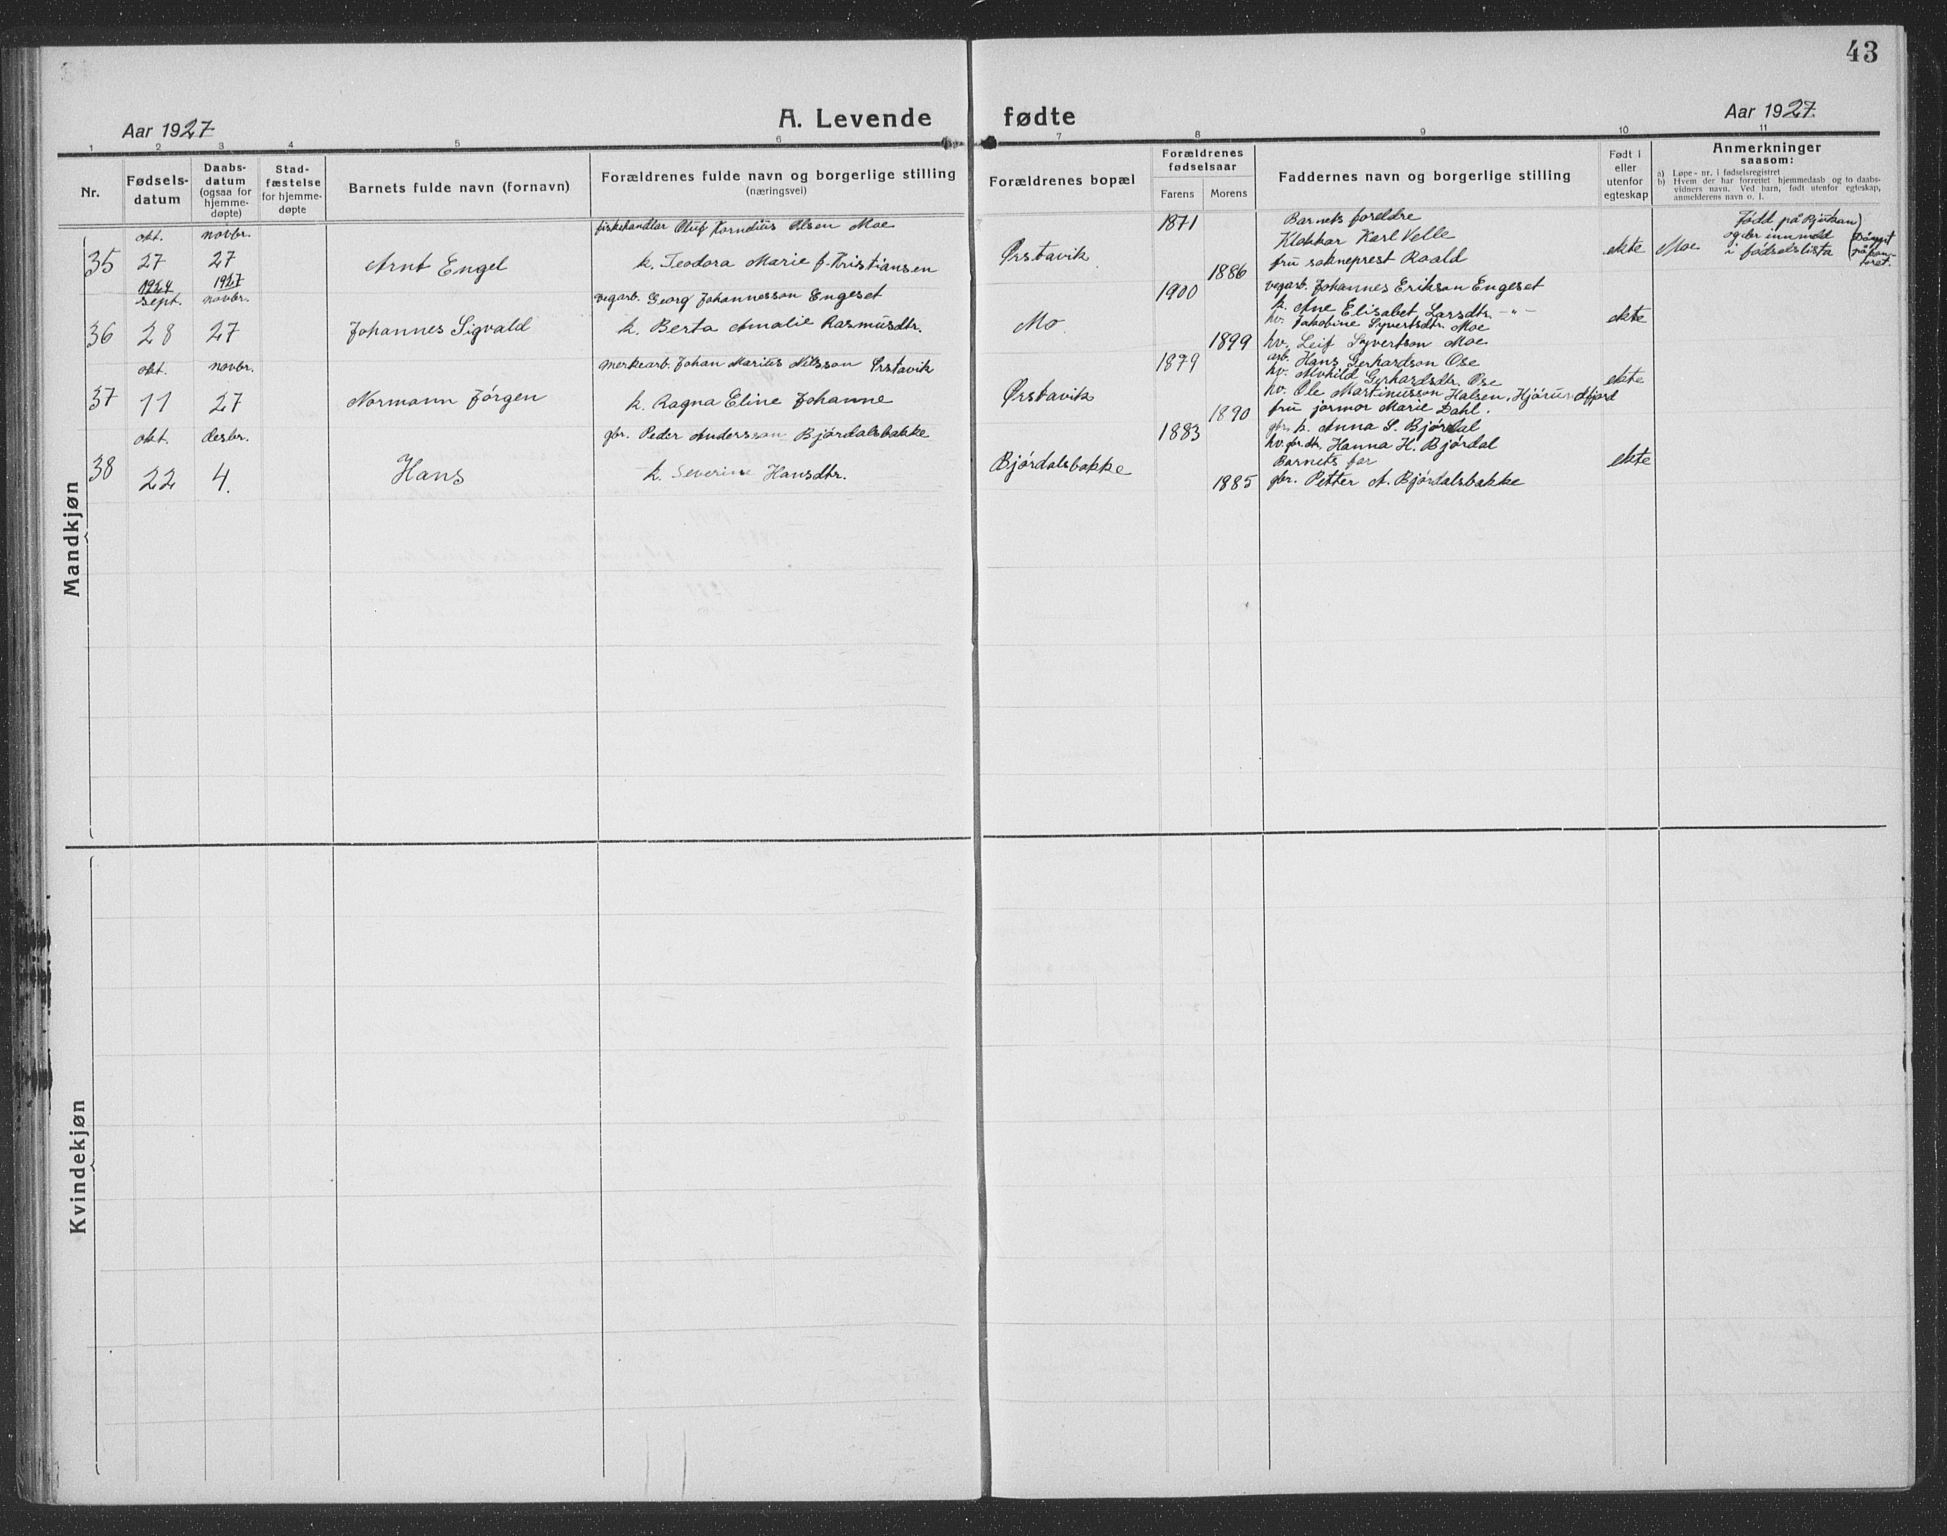 43
Aar 1927
A. Levende fødte
Aar 1927.
1 2 3 4 5 6 7 8 9 10 11
Nr.
Fødsels-
datum
Daabs-
datum
(ogsaa for
hjemme-
døpte)
Stad-
fæstelse
for hjemme-
døpte
Barnets fulde navn (fornavn)
Forældrenes fulde navn og borgerlige stilling
(næringsvei)
Forældrenes bopæl
Forældrenes
fødselsaar
Farens Morens
Faddernes navn og borgerlige stilling
Født i
eller
utenfor
egteskap
Anmerkninger
saasom:
a) Løpe-nr. i fødselsregistret
b) Hvem der har forrettet hjemmedaab og to daabs-
vidners navn. Ved barn, født utenfor egteskap,
anmelderens navn o. l.
Mandkjøn
35
okt.
27
1924
novbr.
27
1927
Arnt Engel
fiskehandlar Oluf Kornelius Olsen Moe
k. Teodora Marie f. Kristiansen
Ørstavik
1871
1886
Barnets foreldre
Klokkar Karl Velle
fru sokneprest Roald
ekte
Moe
Fødd på Rjukan
og der innmeld
i fødselslista
(Døypt
på kon-
toret.
36
sept.
28
novbr.
27
Johannes Sigvald
vegarb. Georg Johannesson Engeset
k. Berta Amalie Rasmusdtr.
Mo
1900
1899
vegarb. Johannes Erikson Engeset
k. Ane Elisabet Larsdtr. -"-
hv. Jakobine Syvertsdtr. Moe
hv. Leif Syvertson Moe
ekte
37
okt.
11
novbr.
27
Normann Jørgen
merkearb. Johan Marius Nilsson Ørstavik
k. Ragna Eline Johanne
Ørstavik
1879
1890
arb. Hans Gerhardson Ose
hv. Alvhild Gerhardsdtr. Ose
hv. Ole Martinusson Halsen, Hjørundfjord
fru jormor Marie Dahl.
ekte
38
okt.
22
desbr.
4.
Hans
gbr. Peder Andersson Bjørdalsbakke
k. Severine Hansdtr.
Bjørdalsbakke
1883
1885
gbr. k. Anna S. Bjørdal
hv. gbr.dtr. Hanna H. Bjørdal
Barnets far
gbr. Petter A. Bjørdalsbakke
ekte
Kvindekjøn